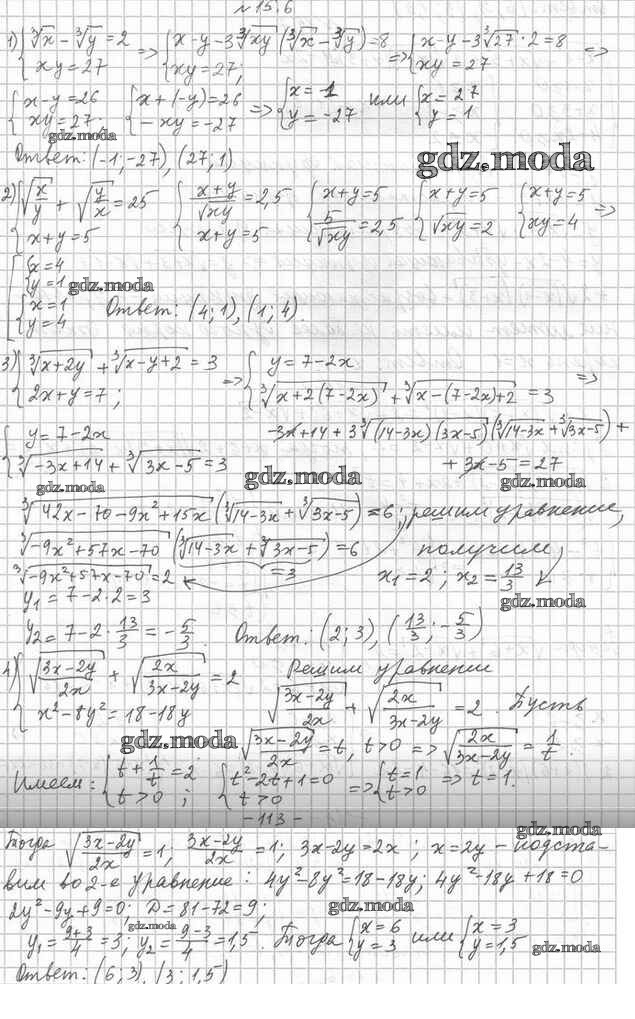 №15.6
1) {∛x − ∛y = 2; xy = 27 ⇒ {x−y−3∛xy (∛x − ∛y) = 8; xy = 27; ⇒ {x−y−3∛27 · 2 = 8; xy = 27 ⇒
{x−y = 26; xy = 27; {x+(−y) = 26; −xy = −27 ⇒ {x = −1; y = −27 или {x = 27; y = 1
gdz.moda
Ответ: (−1; −27), (27; 1)
gdz.moda
2) {√(x/y) + √(y/x) = 25; x+y = 5 {(x+y)/√xy = 2,5; x+y = 5 {x+y = 5; 5/√xy = 2,5 {x+y = 5; √xy = 2 {x+y = 5; xy = 4 ⇒
[{x = 4; y = 1 {x = 1; y = 4 Ответ: (4; 1), (1; 4).
gdz.moda
3) {∛(x+2y) + ∛(x−y+2) = 3; 2x+y = 7; ⇒ {y = 7−2x; ∛(x+2(7−2x)) + ∛(x−(7−2x)+2) = 3 ⇒
{y = 7−2x; ∛(−3x+14) + ∛(3x−5) = 3 −3x+14+3∛((14−3x)(3x−5)) (∛(14−3x) + ∛(3x−5)) +
+ 3x−5 = 27
gdz.moda
gdz.moda
gdz.moda
∛(42x−70−9x²+15x) (∛(14−3x) + ∛(3x−5)) = 6; решим уравнение,
∛(−9x²+57x−70) (∛(14−3x) + ∛(3x−5)) = 6 получим
= 3
∛(−9x²+57x−70) = 2 x₁ = 2; x₂ = 13/3
gdz.moda
y₁ = 7−2·2 = 3
y₂ = 7−2·13/3 = −5/3. Ответ: (2; 3), (13/3; −5/3)
4) {√((3x−2y)/2x) + √(2x/(3x−2y)) = 2; x²−8y² = 18−18y Решим уравнение
√((3x−2y)/2x) + √(2x/(3x−2y)) = 2. Пусть
gdz.moda
√((3x−2y)/2x) = t, t>0 ⇒ √(2x/(3x−2y)) = 1/t
Имеем: {t + 1/t = 2; t>0; {t²−2t+1 = 0; t>0 ⇒ {t = 1; t>0 ⇒ t = 1.
−113−
gdz.moda
Тогда √((3x−2y)/2x) = 1; (3x−2y)/2x = 1; 3x−2y = 2x; x = 2y − подста-
вим во 2-е уравнение: 4y²−8y² = 18−18y; 4y²−18y+18 = 0
2y²−9y+9 = 0; D = 81−72 = 9;
gdz.moda
gdz.moda
y₁ = (9+3)/4 = 3; y₂ = (9−3)/4 = 1,5. Тогда {x = 6; y = 3 или {x = 3; y = 1,5
gdz.moda
Ответ: (6; 3), (3; 1,5)
gdz.moda